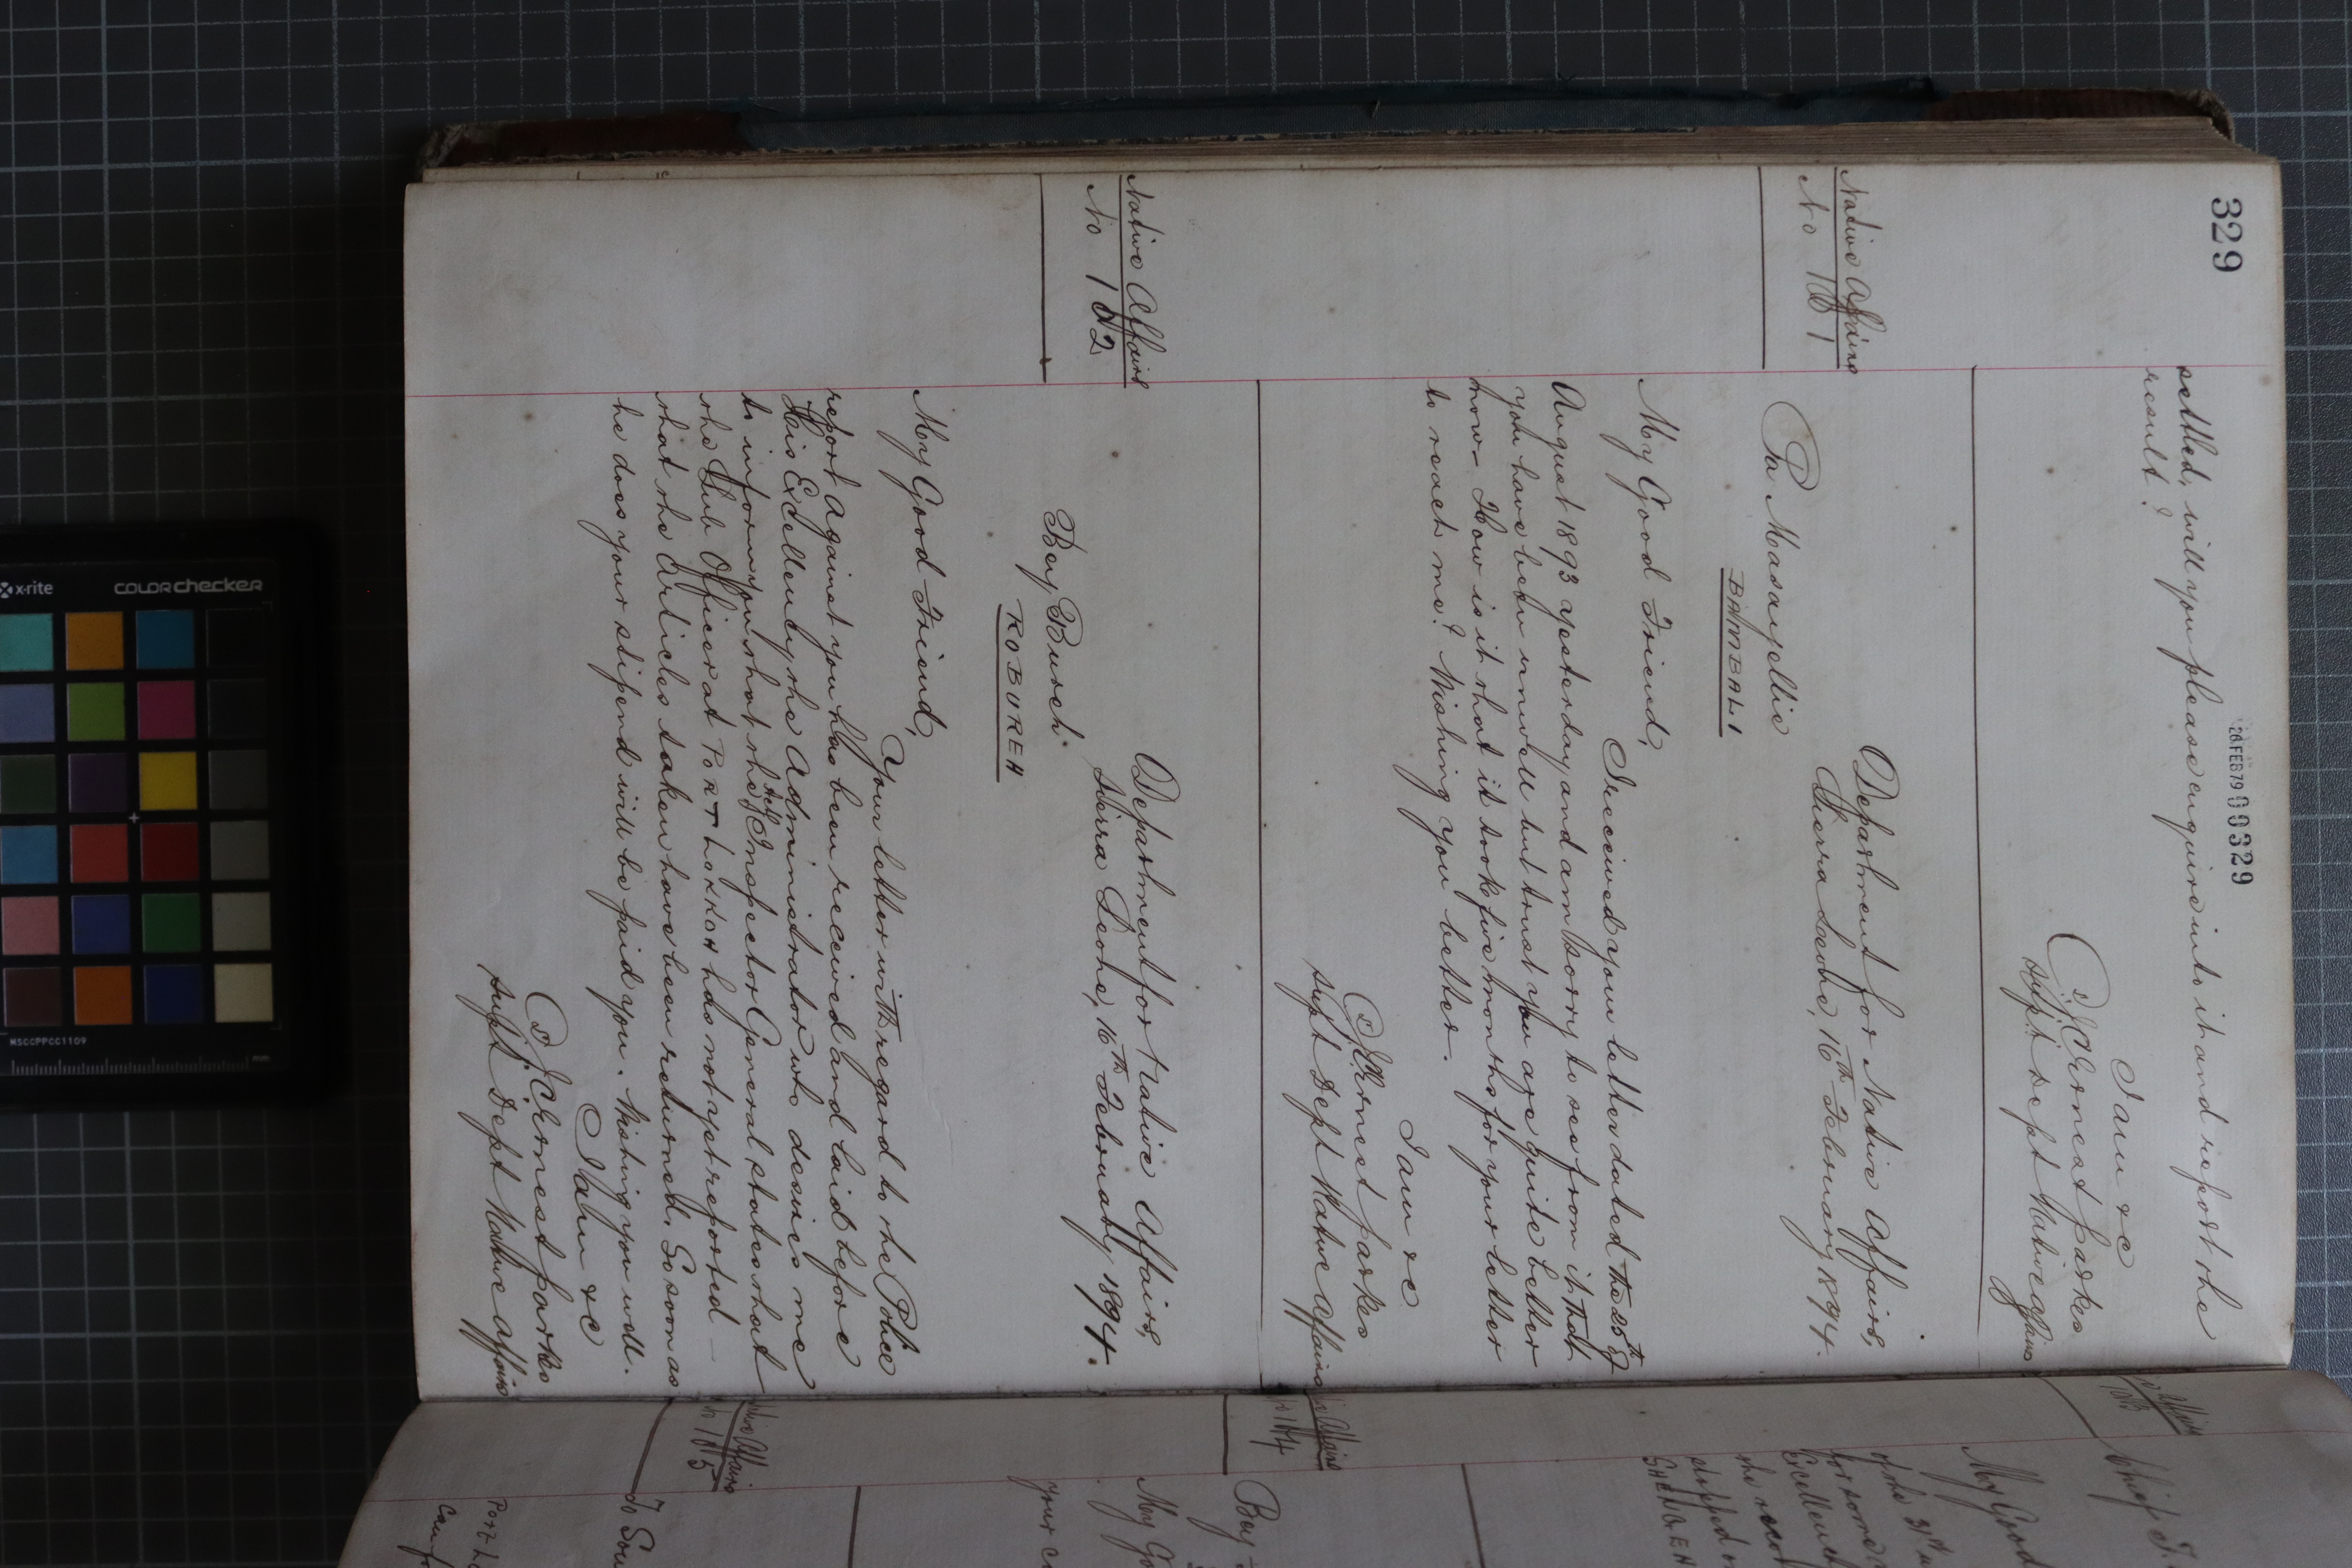 329
28 FEB 79 00329
settled, will you please enquire into it and report the
result?
I am &c
J. C. Ernest Parkes
Supt Dept Native Affairs
Native Affairs
No 181
Department for Native Affairs,
Sierra Leone, 16th February 1894.
Pa Masaryellie
BAMBALI
My Good Friend,
I received your letter dated the 25th of
August 1893 yesterday and am sorry to see from it that
you have been unwell but trust you are quite better
now. How is it that it took five months for your letter
to reach me? Wishing you better.
I am &c
J. C. Ernest Parkes
Supt Dept Native Affairs
Native Affairs
No 182
Department for Native Affairs,
Sierra Leone, 16th February 1894.
Bey Bureh
ROBUREH
My Good Friend,
Your letter with regard to the Police
report against you has been received and laid before
His Excellency the Administrator who desires me
to inform you that the Actg Inspector General states that
the Sub Officer at PORT LOKKOH has not yet reported
that the articles taken have been returned. So soon as
he does your stipend will be paid you. Wishing you well.
I am &c
J. C. Ernest Parkes
Supt Dept Native Affairs
Affairs
Chief
My Good
of the 31st
for some
Excellency
the
stopped
Affairs
Bey
My Go
your
Native Affairs
To Sou
Port Lo
x-rite
COLORchecker
MSCCPPCC1109
mm